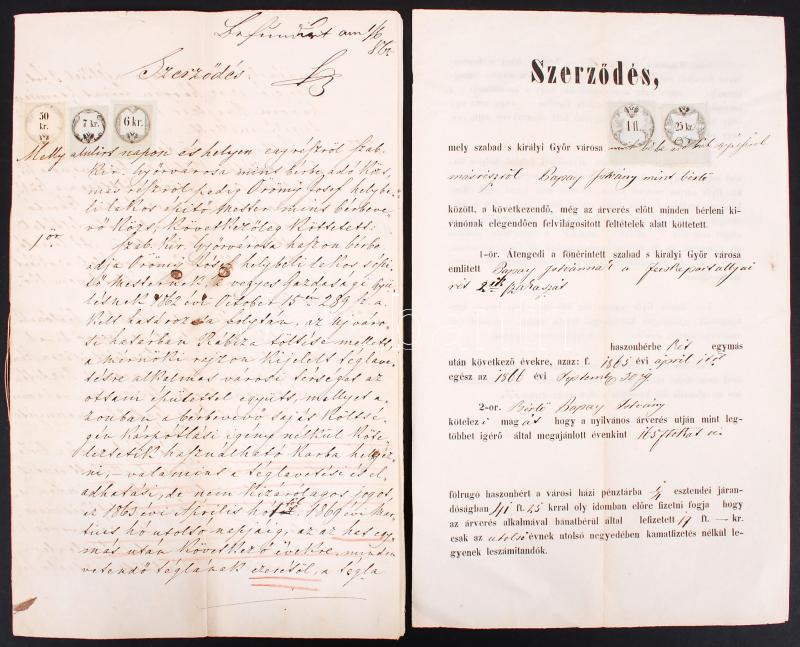 Szerződés.
50
kr.
7 kr.
6 kr.
Melly alulirt napon és helyen egy részről Szab.
Kir. Győrvárosa mint bérbeadó köz,
más részről pedig Örömy József helybe-
li lakos épitő Mester mint bérbeve-
vő közt, következőleg köttetett:
Szab. kir. Győrvárosa haszonbérbe
adja Örömy helybeli lakos épi-
tő Mesternek vegyes Gazdasági
ülésnek 1862 évi October 15 289 sz. a.
kelt határozata folytán, az uj város
határban Rabiza töltése mellett,
a mérnöki rajzon kijelelt téglave-
tésre alkalmas városi térséget az
ottani épülettel együtt, mellyet a-
zonban a bérbevevő saját költsé-
gén kárpótlási igény nélkül köte-
leztetik használható karba helyez-
ni, – valamint a téglavetési és el-
adhatási, de nem kizárólagos jogot,
az 1863 évi Április hó 1869 évi Mar-
tius hó utolsó napjáig, az az hat egy
más után következő évekre, minden
vetendő téglának ezerétől, a tégla
Szerződés,
1 fl.
25 kr.
mely szabad s királyi Győr városa mint bérbe adó egy részről
másrészről Bapay Istvány mint bérlő
között, a következendő, még az árverés előtt minden bérleni ki-
vánónak elegendően felvilágosított feltételek alatt köttetett.
1-ör. Átengedi a fönérintett szabad s királyi Győr városa
említett Bapay Istvánnak a
rét 2ik
haszonbérbe két egymás
után következő évekre, azaz: f. 1865 évi április
egész az 1866 évi September 30ig
2-or. Bérlő Bapay Istvány
kötelezi magát hogy a nyilvános árverés utján mint leg-
többet igérő által megajánlott évenkint 165
fölrugó haszonbért a városi házi pénztárba ¼ esztendei járan-
dóságban 41 ft. 25 krral oly idomban előre fizetni fogja hogy
az árverés alkalmával bánatbérül által lefizetett 17 ft. — kr.
csak az utolsó évnek utolsó negyedében kamatfizetés nélkül le-
gyenek leszámitandók.